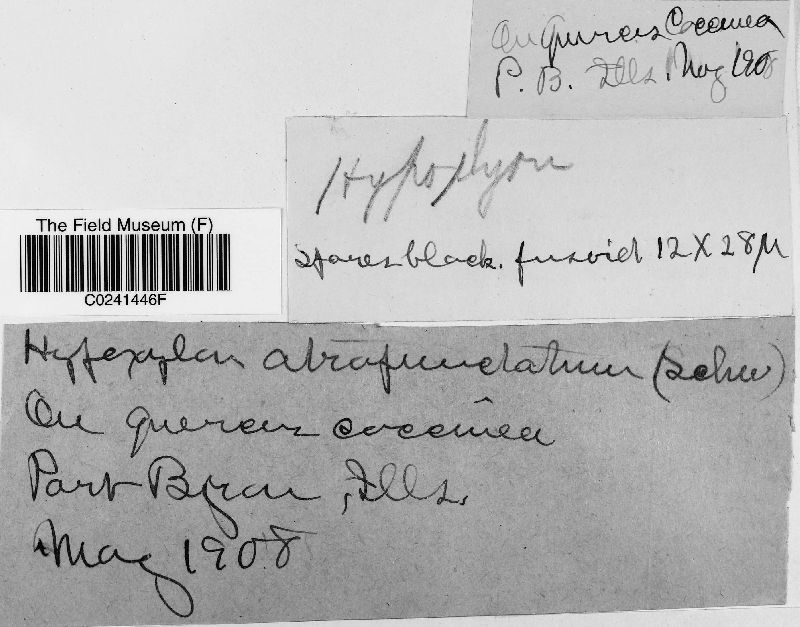 On Quercus Coccinea
P. B. Ills. May 1908
Hypoxylon
Spores black. fusoid 12 X 28µ
The Field Museum (F)
C0241446F
Hypoxylon atropunctatum (Schw)
On quercus coccinea
Port Byron, Ills.
May 1908